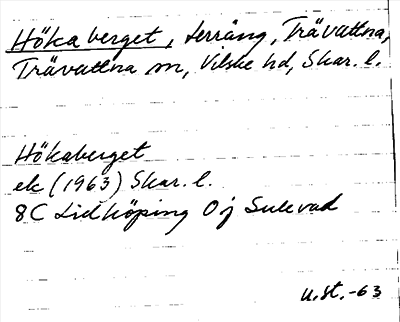 Hökaberget, terräng, Trävattna,
Trävattna sn, Vilske hd, Skar. l.
Hökaberget
ek (1963) Skar. l.
8C Lidköping 0j Sulevad
u.st.-63